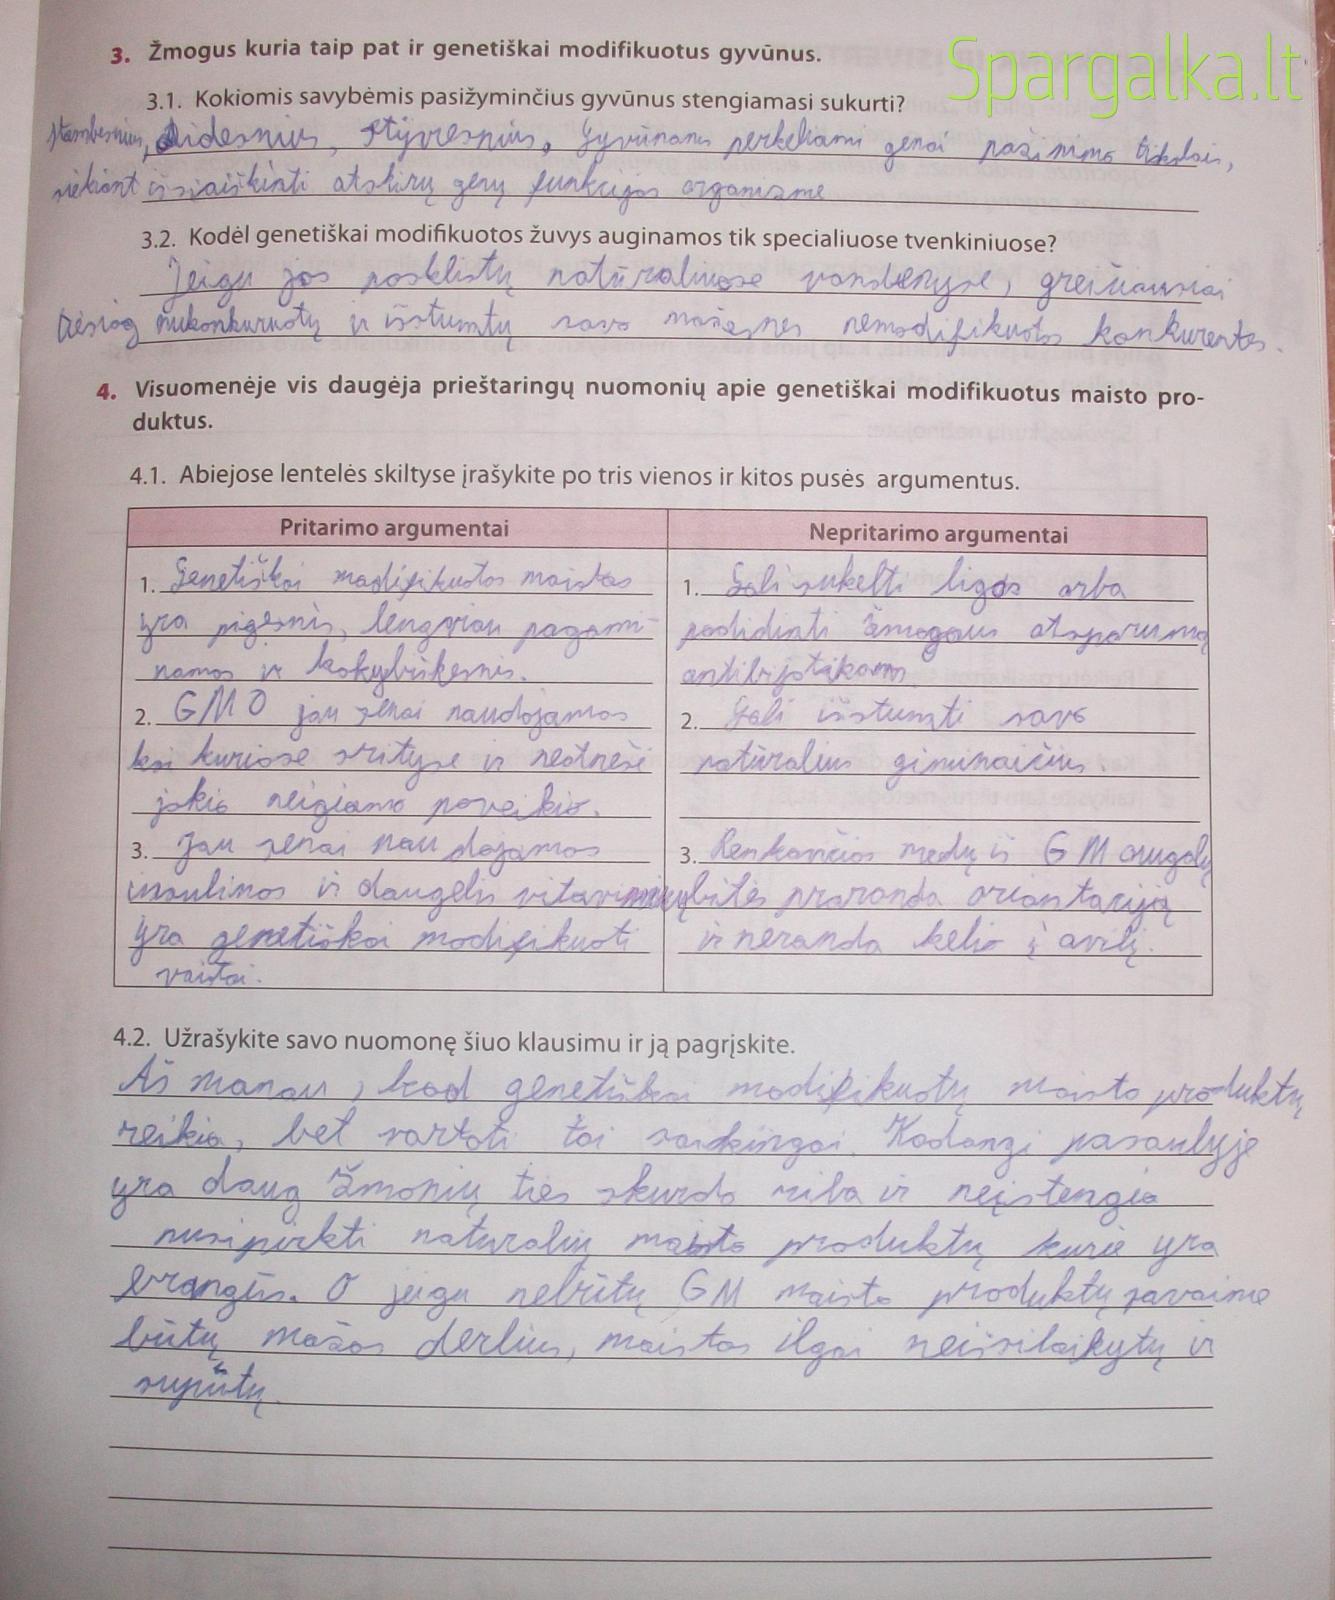 Spargalka.lt
3. Žmogus kuria taip pat ir genetiškai modifikuotus gyvūnus.
3.1. Kokiomis savybėmis pasižyminčius gyvūnus stengiamasi sukurti?
stambesnius, didesnius, stipresnius. Gyvūnams perkeliami genai pažinimo tikslais,
siekiant išsiaiškinti atskirų genų funkcijas organizme
3.2. Kodėl genetiškai modifikuotos žuvys auginamos tik specialiuose tvenkiniuose?
Jeigu jos pasklistų natūraliuose vandenyse, greičiausiai
tiesiog nukonkuruotų ir išstumtų savo mažesnes nemodifikuotas konkurentes.
4. Visuomenėje vis daugėja prieštaringų nuomonių apie genetiškai modifikuotus maisto pro-
duktus.
4.1. Abiejose lentelės skiltyse įrašykite po tris vienos ir kitos pusės argumentus.
Pritarimo argumentai
1. Genetiškai modifikuotas maistas
yra pigesnis, lengviau pagami-
namas ir kokybiškesnis.
2. GMO jau senai naudojamas
kai kuriose srityse ir neatnešė
jokio neigiamo poveikio.
3. Jau senai naudojamas
insulinas ir daugelis vitaminų
yra genetiškai modifikuoti
vaistai.
Nepritarimo argumentai
1. Gali sukelti ligas arba
padidinti žmogaus atsparumą
antibijotikams
2. Gali išstumti savo
natūralius giminaičius.
3. Renkančios medų iš GM augalų
bitės praranda orientaciją
ir neranda kelio į avilį.
4.2. Užrašykite savo nuomonę šiuo klausimu ir ją pagrįskite.
Aš manau, kad genetiškai modifikuotų maisto produktų
reikia, bet vartoti tai saikingai. Kadangi pasaulyje
yra daug žmonių ties skurdo riba ir neįstengia
nusipirkti naturalių maisto produktų kurie yra
brangūs. O jeigu nebūtų GM maisto produktų savaime
būtų mažas derlius, maistas ilgai neišsilaikytų ir
supūtų.